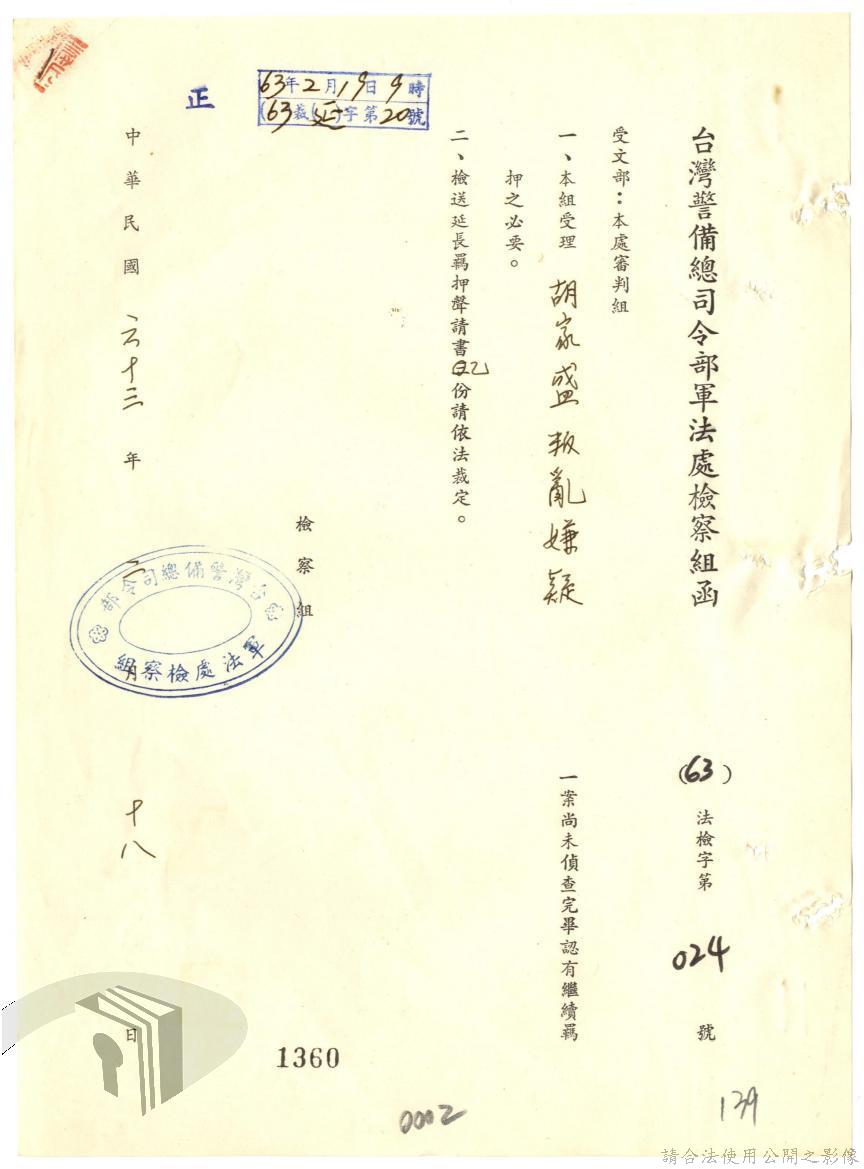 台灣警備總司令部軍法處檢察組函
(63)法檢字第024號
受文部：本處審判組
一、本組受理胡家盛叛亂嫌疑一案尚未偵查完畢認有繼續羈
押之必要。
二、檢送延長羈押聲請書份請依法裁定。
檢察組
台灣警備總司令部
軍法處檢察組
中華民國六十三年二月十八日
正
63年2月19日9時
(63)裁(延)字第20號
1360
0002
139
請合法使用公開之影像